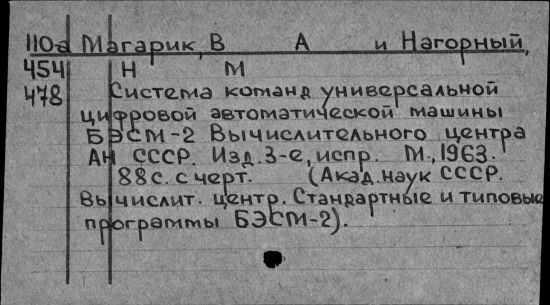 110а Магарик, В А и Нагорный,
454 Н М
478 Система команд универсальной
цифровой автоматической машины
БЭСМ-2 Вычислительного центра
АН СССР. Изд. 3-е, испр. М., 1963.
88 с. с черт. (Акад. наук СССР.
Вычислит. центр. Стандартные и типовые
программы БЭСМ-2).